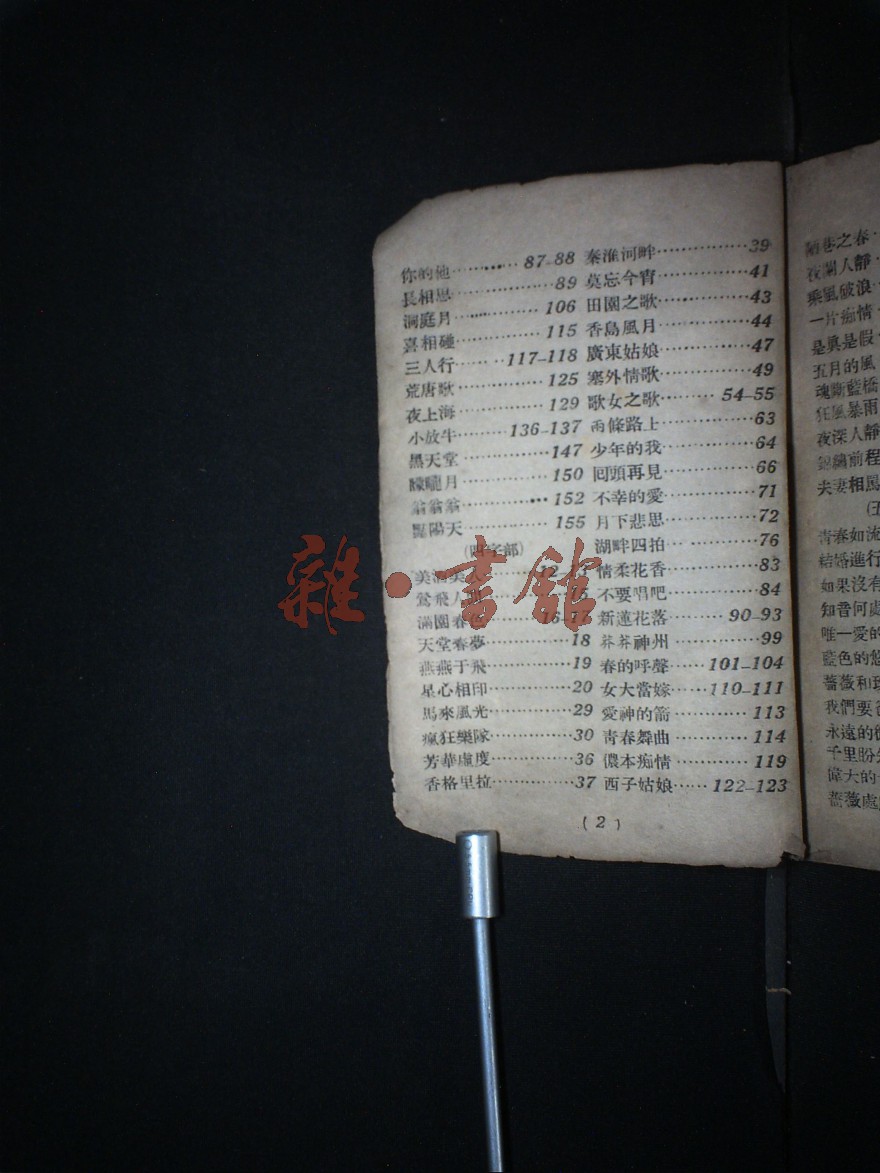 你的他………… 87-88
長相思…………89
洞庭月………… 106
喜相碰………… 115
三人行……… 117-118
荒唐歌………… 125
夜上海………… 129
小放牛……… 136-137
黑天堂…………147
朦朧月………… 150
翁翁翁………… 152
豔陽天………… 155
(四字部)
美酒美人………12-13
鶯飛人間………… 15
滿園春色………16-17
天堂春夢…………18
燕燕于飛…………19
星心相印…………20
馬來風光…………29
瘋狂樂隊…………30
芳華虛度…………36
香格里拉…………37
秦淮河畔…………39
莫忘今宵…………41
田園之歌…………43
香島風月…………44
廣東姑娘…………47
塞外情歌…………49
歌女之歌……… 54-55
兩條路上…………63
少年的我…………64
囘頭再見…………66
不幸的愛…………71
月下悲思…………72
湖畔四拍…………76
情柔花香…………83
不要唱吧…………84
新蓮花落……… 90-93
莽莽神州…………99
春的呼聲……101-104
女大當嫁……110-111
愛神的箭…………113
青春舞曲…………114
儂本痴情…………119
西子姑娘…… 122-123
(2)
陋巷之春
夜闌人靜
乘風破浪
一片痴情
是眞是假
五月的風
魂斷藍橋
狂風暴雨
夜深人靜
錦繡前程
夫妻相罵
(五
青春如流
結婚進行
如果沒有
知音何處
唯一愛的
藍色的
薔薇和
我們要
永遠的
千里盼
偉大的
薔薇處
雜·書館